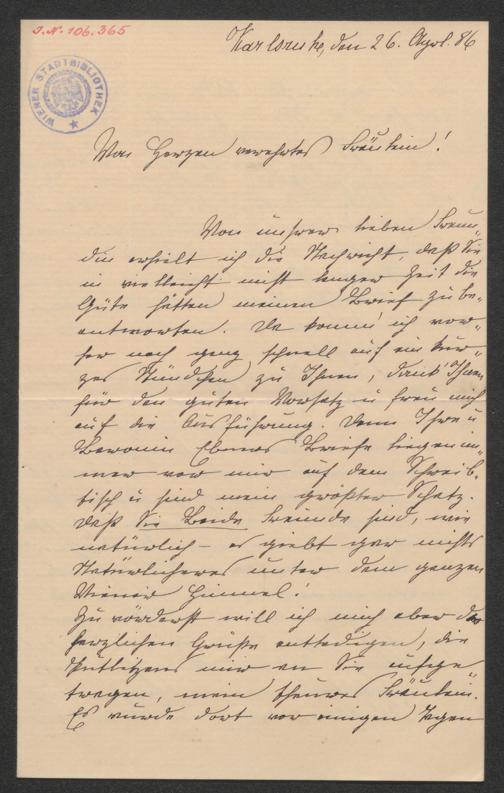 I.N. 106.365
WIENER STADTBIBLIOTHEK
Karlsruhe, den 26. Apr. 86
Von Herzen verehrtes Fräulein!
Von unsrer lieben Freun-
din erhielt ich die Nachricht, daß Sie
in vielleicht nicht langer Zeit die
Güte hätten meinen Brief zu be-
antworten. Da komm' ich vor-
her noch ganz schnell auf ein kur-
zes Stündchen zu Ihnen, dank' Ihnen
für den guten Vorsatz u freu mich
auf die Ausführung. Denn Ihre u.
Baronin Ebners Briefe liegen im-
mer vor mir auf dem Schreib-
tisch u sind mein größter Schatz.
Daß Sie Beide Freunde sind, wie
natürlich – es giebt gar nichts
Natürlicheres unter dem ganzen
Wiener Himmel.
Zu vörderst will ich mich aber der
herzlichen Grüße entledigen, die
Putlitzens mir an Sie aufge-
tragen, mein theures Fräulein.
Es wurde dort vor einigen Tagen